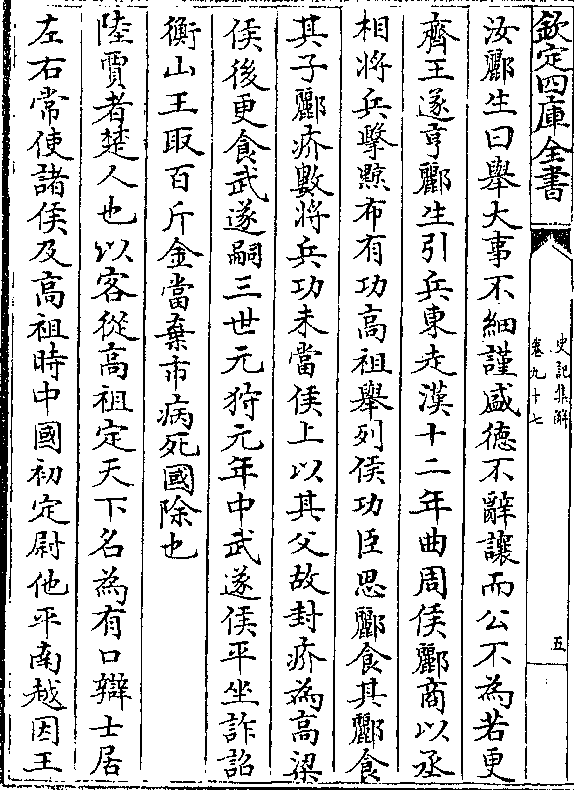 欽定四庫全書
史記集解
卷九十七
五
汝酈生曰舉大事不細謹盛德不辭讓而公不為若更
齊王遂亨酈生引兵東走漢十二年曲周侯酈商以丞
相將兵擊黥布有功高祖舉列侯功臣思酈食其酈食
其子酈疥數將兵功未當侯上以其父故封疥為高梁
侯後更食武遂嗣三世元狩元年中武遂侯平坐詐詔
衡山王取百斤金當棄市病死國除也
陸賈者楚人也以客從高祖定天下名為有口辯士居
左右常使諸侯及高祖時中國初定尉他平南越因王